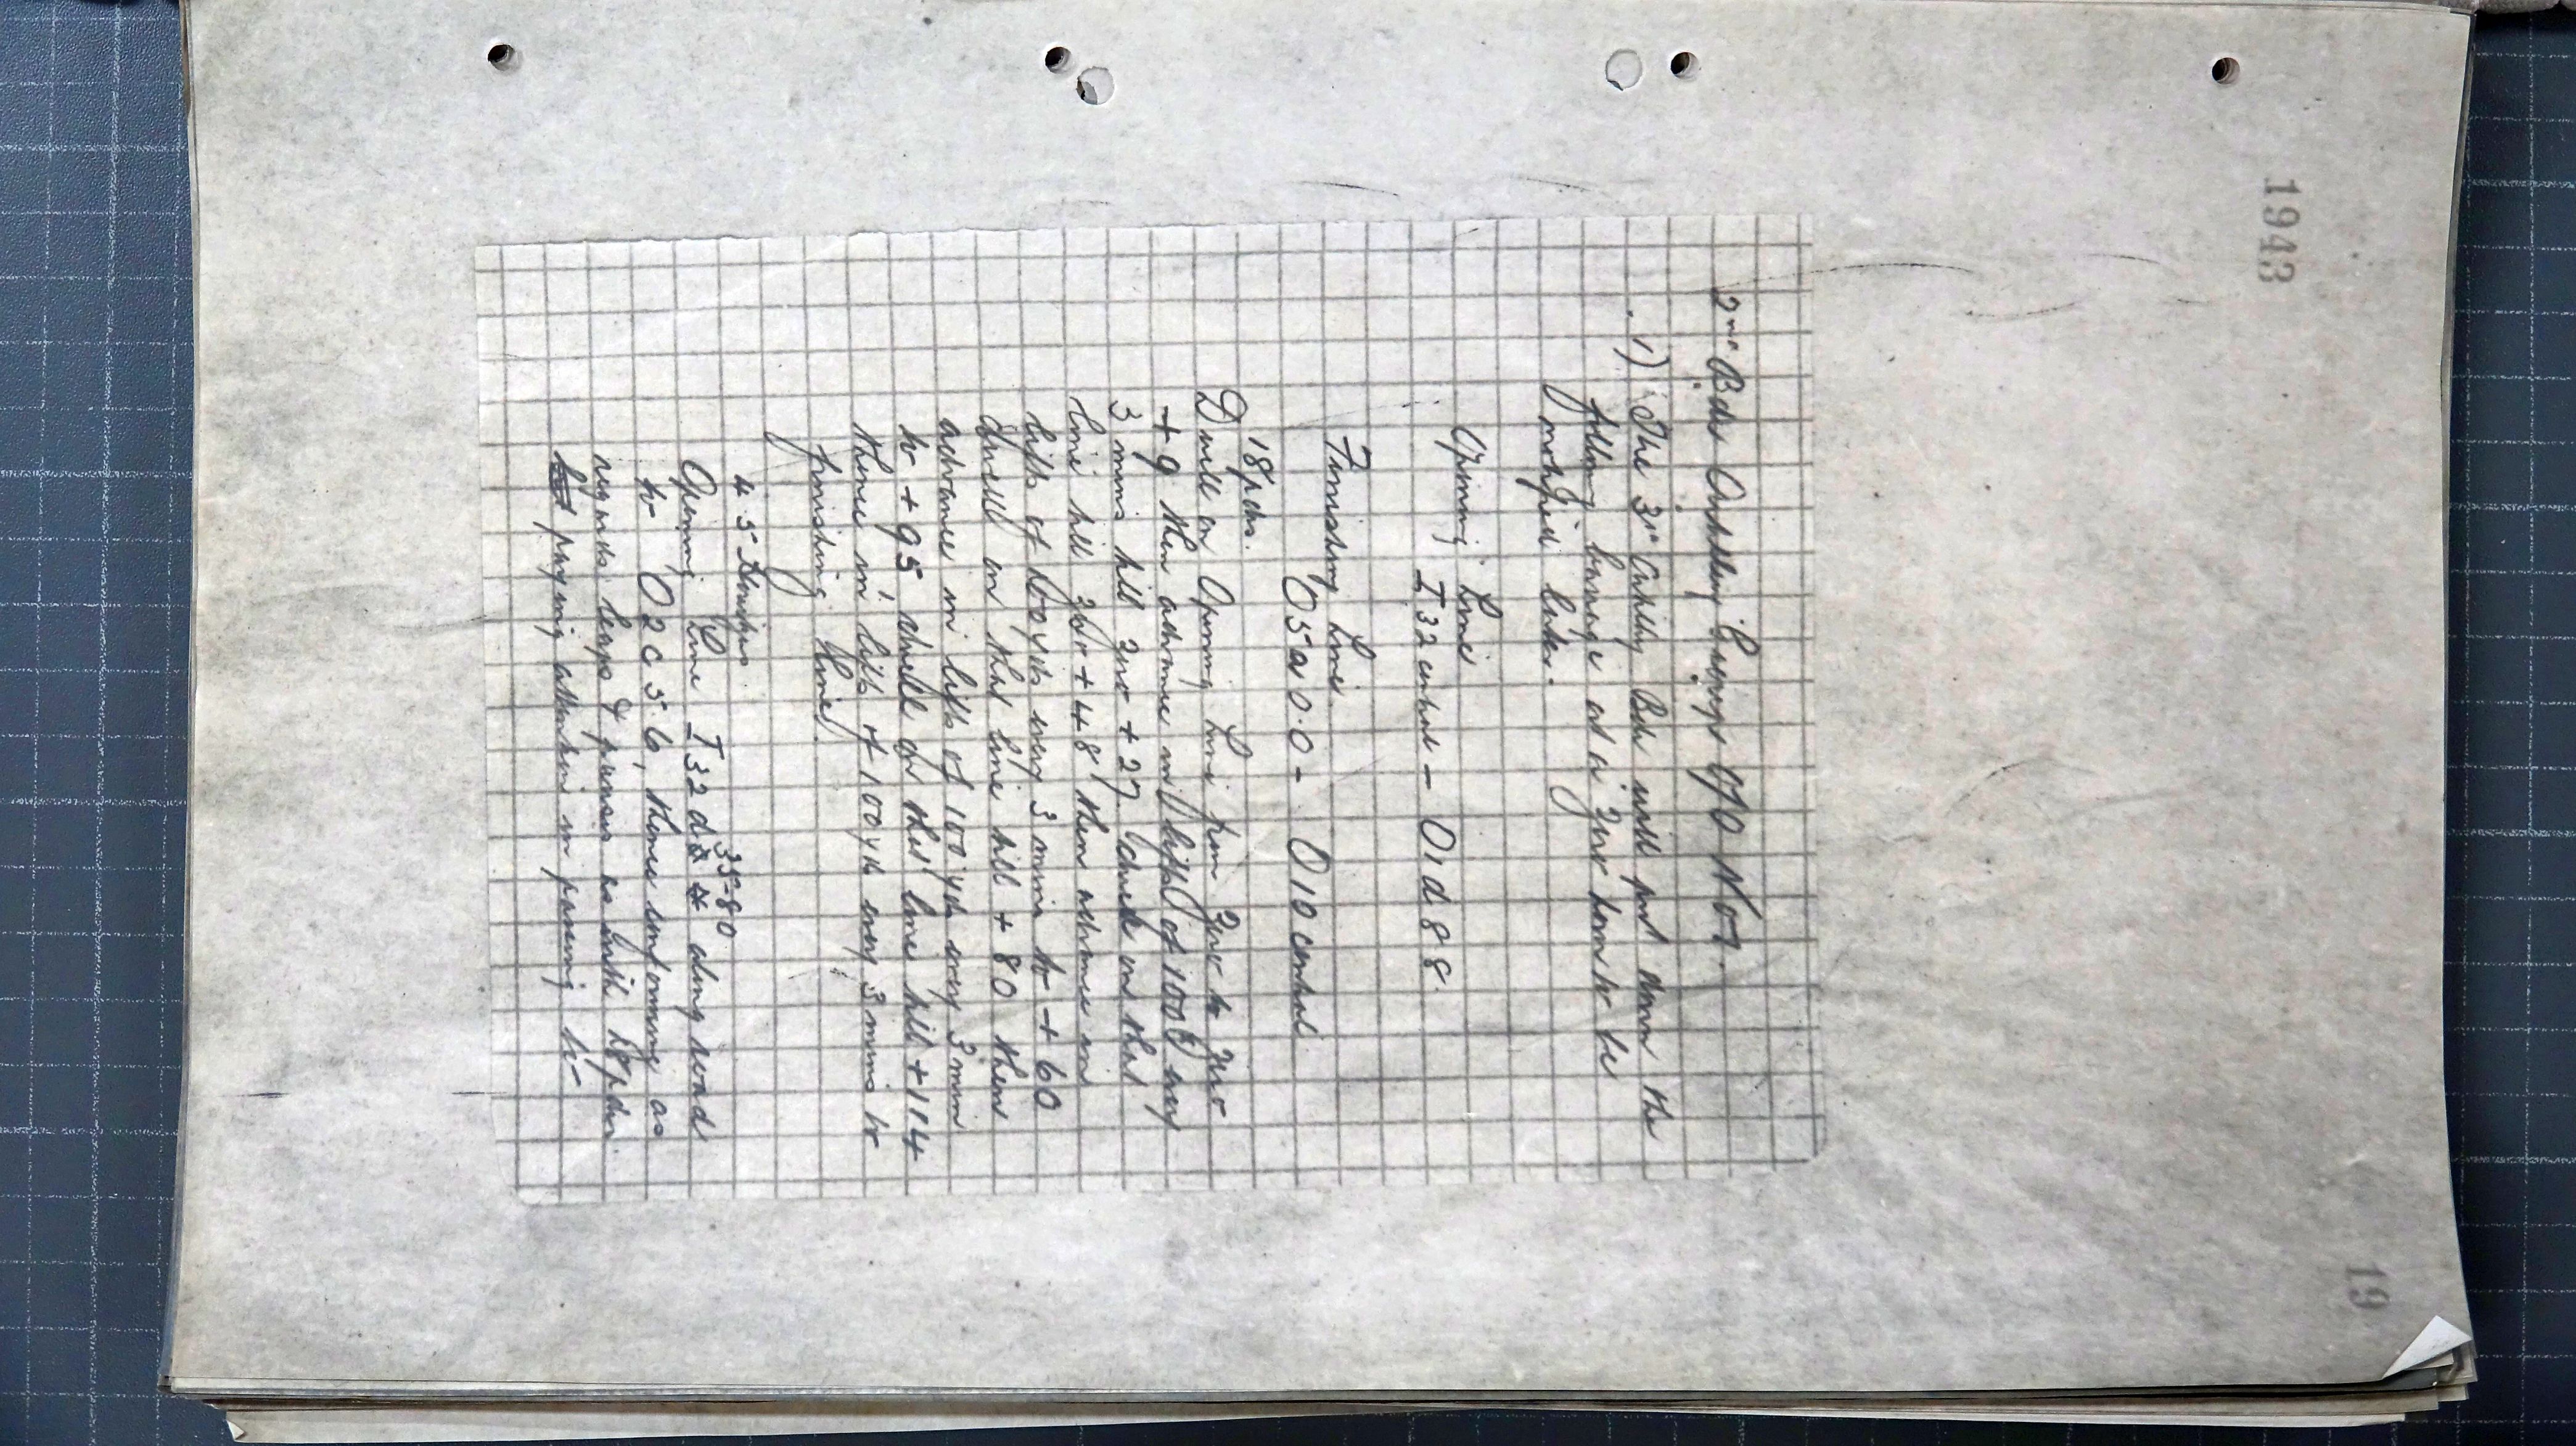 1943
19
2nd Bde Artillery Group O/O No 7.
1) The 3rd Artillery Bde will put down the
following barrage at a Zero hour to be
notified later.
Opening Line
I32 central – O1d88.
Finishing Line
O5a00 – O10 central
18pdrs.
Dwell on Opening Line from Zero to Zero
+9 then advance in lifts of 100x every
3 mins till Zero +27 dwell on that
line till Zero +48 then advance in
lifts of 100 yds every 3 mins to +60
dwell on that line till +80 then
advance in lifts of 100 yds every 3 mins
to +95, dwell on that line till +104
thence in lifts of 100 yds every 3 mins to
finishing line.
4.5" Howitzers
35-80
Opening Line I32d along road
to O2c5.6, thence conforming as
regards leaps & pauses as with 18pdrs.
paying attention in passing to –